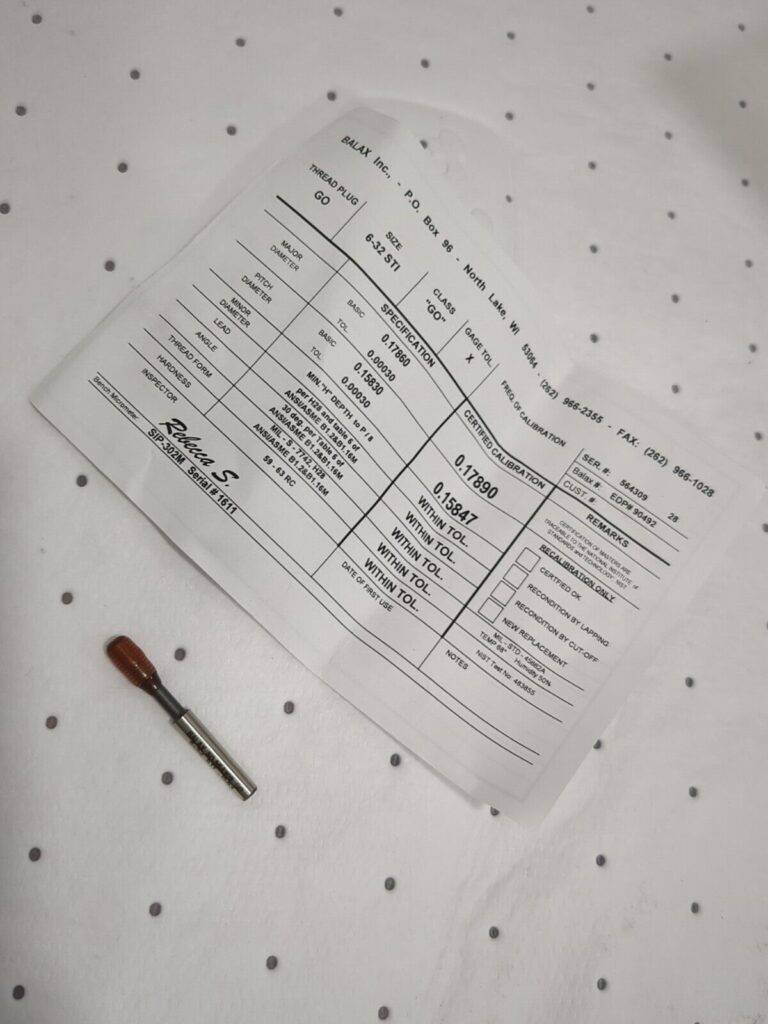 BALAX Inc., - P.O. Box 96 - North Lake, WI 53064 - (262) 966-2355 - FAX: (262) 966-1028
THREAD PLUG
GO
SIZE
6-32 STI
CLASS
"GO"
GAGE TOL
X
FREQ. OF CALIBRATION
SER. #: 564309 28
Balax #: EDP# 90492
CUST. #
SPECIFICATION
CERTIFIED CALIBRATION
REMARKS
MAJOR
DIAMETER
BASIC 0.17860
TOL. 0.00030
0.17890
PITCH
DIAMETER
BASIC 0.15830
TOL. 0.00030
0.15847
MINOR
DIAMETER
MIN. "H" DEPTH to P / 8
per H28 and table 6 of
WITHIN TOL.
LEAD
ANSI/ASME B1.2&B1.16M
WITHIN TOL.
ANGLE
30 deg. per Table 6 of
ANSI/ASME B1.2&B1.16M
WITHIN TOL.
THREAD FORM
MIL - S - 7742, H28
ANSI/ASME B1.2&B1.16M
WITHIN TOL.
HARDNESS
59 - 63 RC
WITHIN TOL.
INSPECTOR
Rebecca S.
DATE OF FIRST USE
Bench Micrometer:
SIP-302M Serial # 1611
CERTIFICATION OF MASTERS ARE
TRACEABLE TO THE NATIONAL INSTITUTE of
STANDARDS and TECHNOLOGY - NIST
RECALIBRATION ONLY
CERTFIED OK
RECONDITION BY LAPPING
RECONDITION BY CUT-OFF
NEW REPLACEMENT
MIL - STD - 45662A
TEMP 68° Humidity 50%
NIST Test No: 483855
NOTES